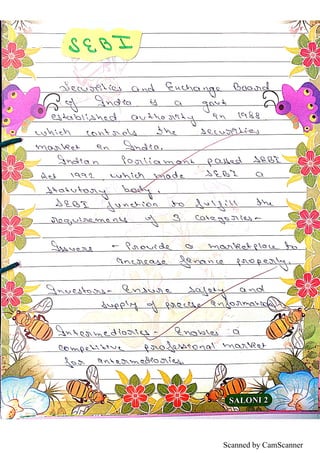 SEBI
Securities and Exchange Board
of India is a govt
established authority in 1988
which controls the securities
market in India.
Indian Parliament passed SEBI
Act 1992 which made SEBI a
statutory body.
SEBI function to fulfill the
requirements of 3 categories-
Issuers - Provide a marketplace to
increase finance properly.
Investors- Ensure safety and
supply of precise information
Intermediaries- Enables a
competitive professional market
for intermediaries
SALONI 2
Scanned by CamScanner